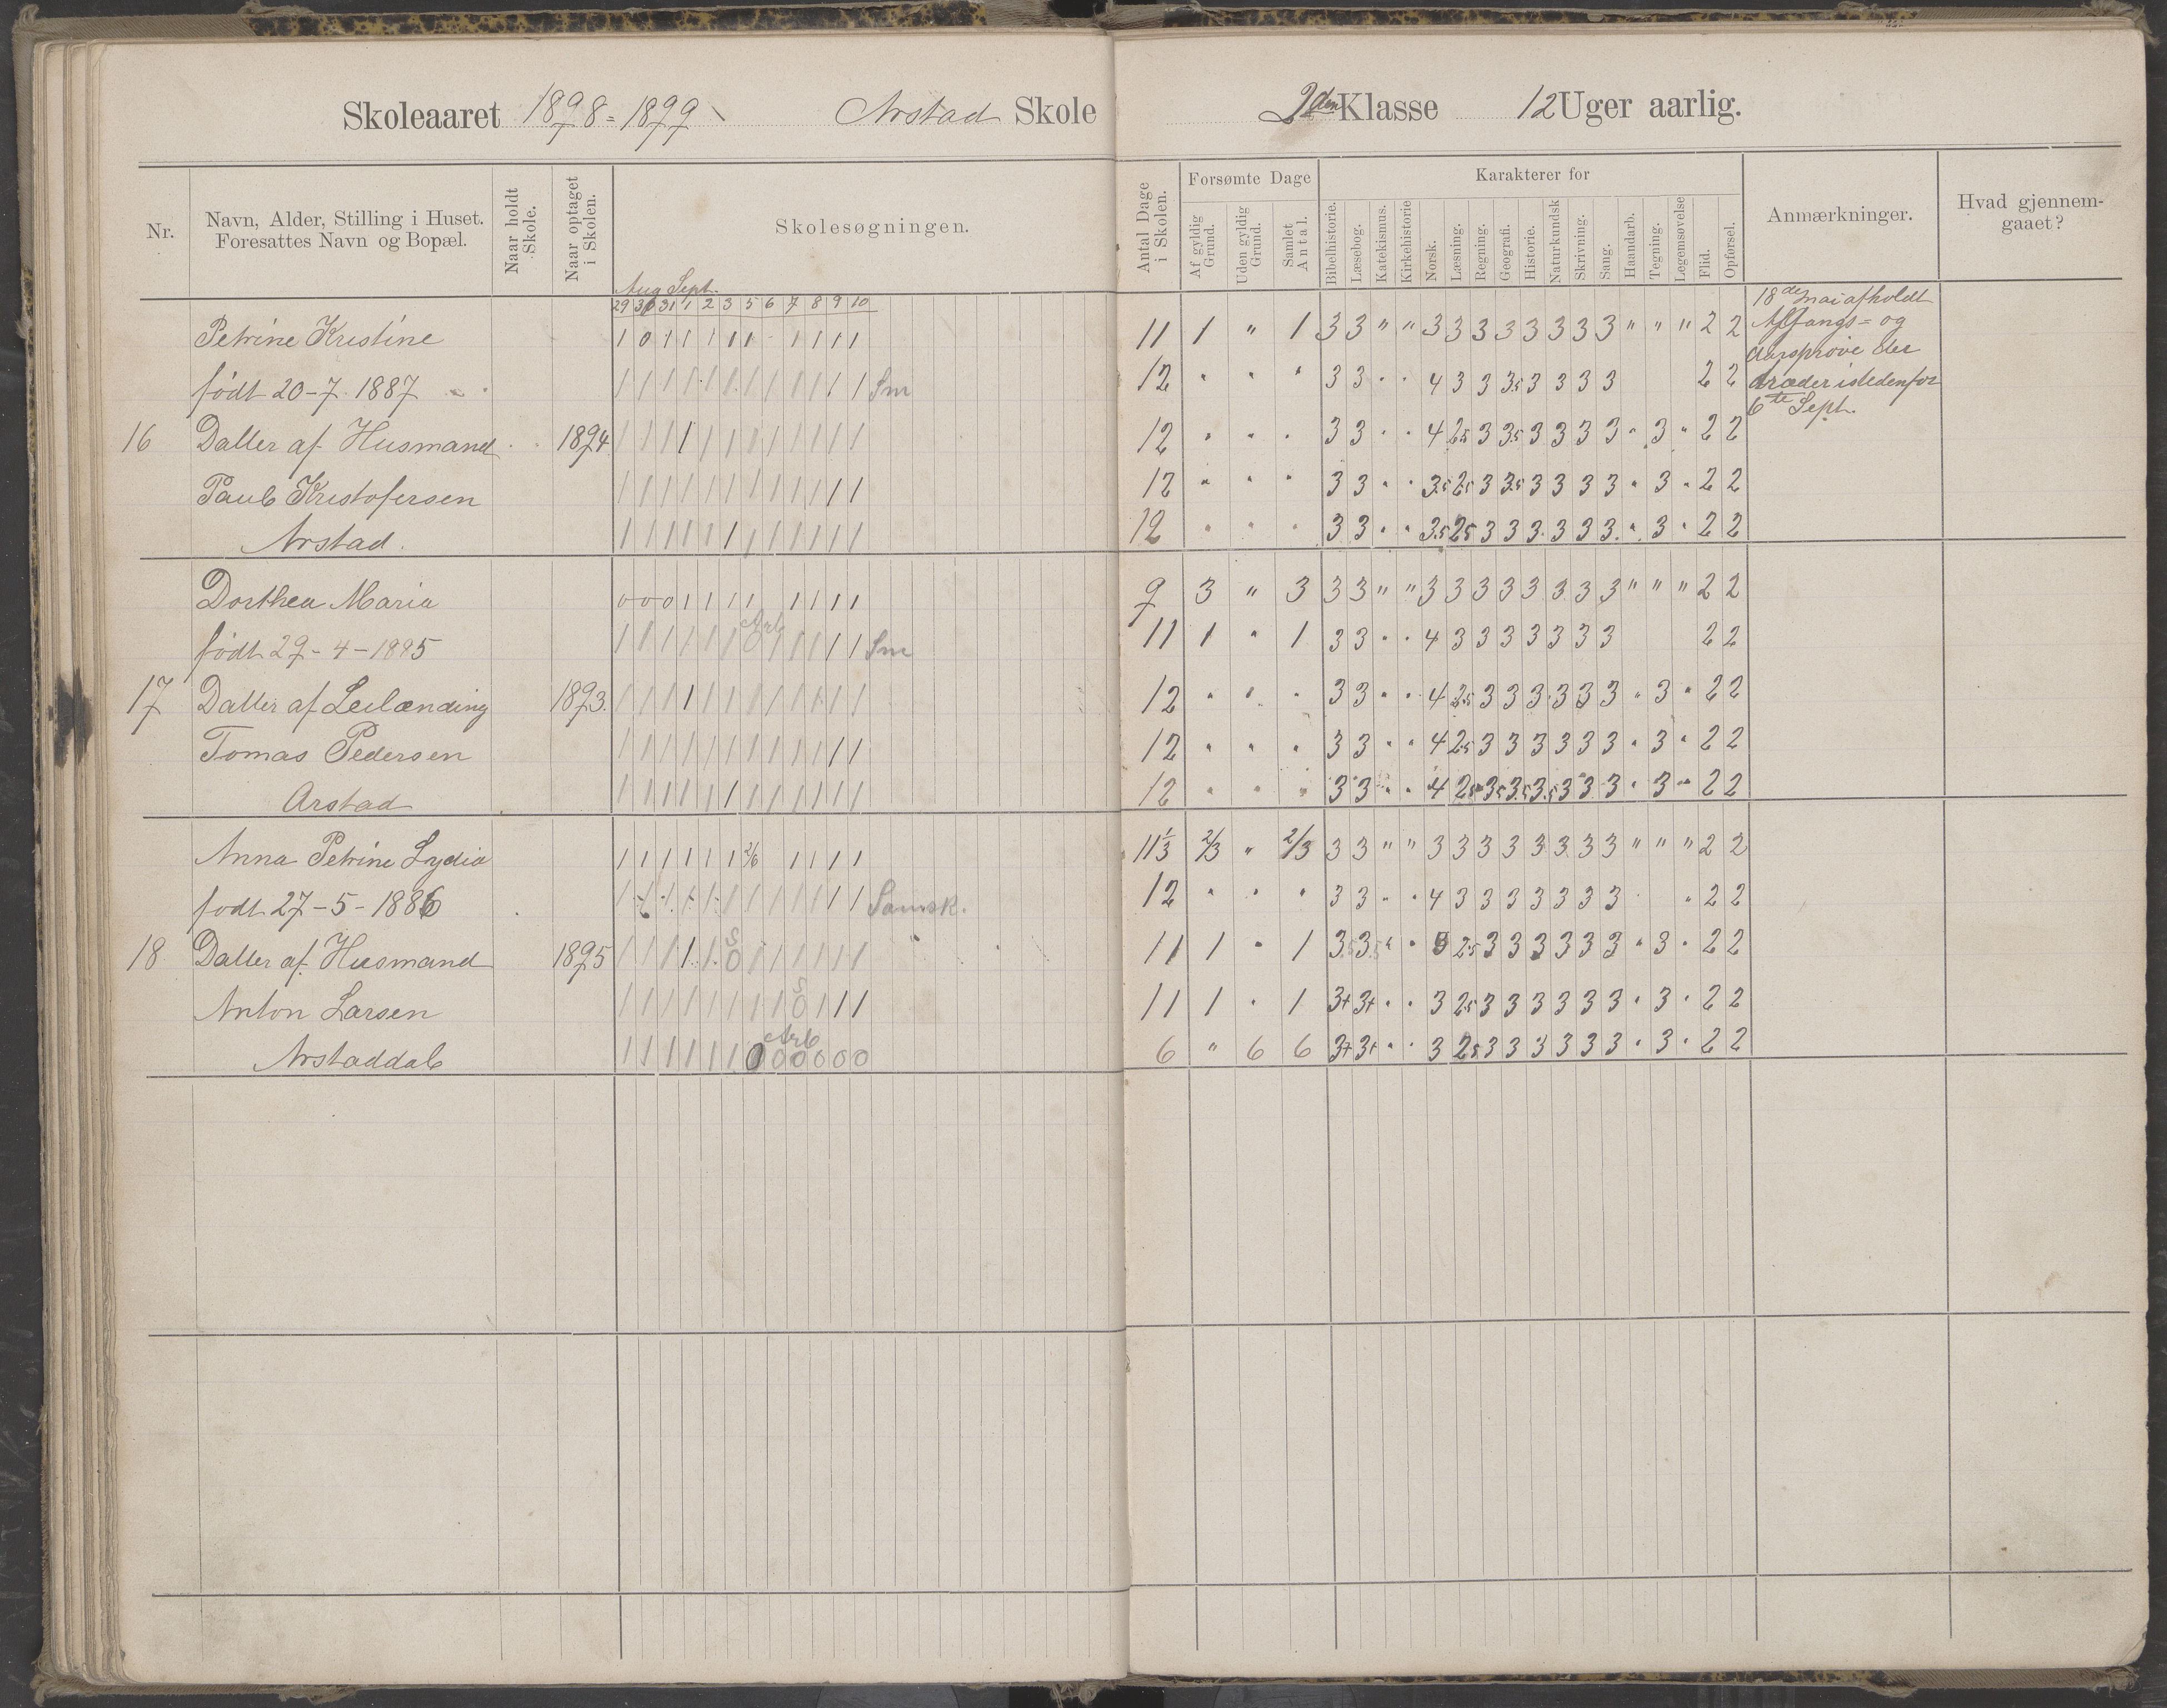 Skoleaaret 1898-1899 Arstad Skole 2den Klasse 12 Uger aarlig.
Nr.
Navn, Alder, Stilling i Huset.
Foresattes Navn og Bopæl.
Naar holdt Skole.
Naar optaget i Skolen.
Skolesøgningen.
Antal Dage i Skolen.
Forsømte Dage
Af gyldig Grund.
Uden gyldig Grund.
Samlet Antal.
Karakterer for
Bibelhistorie.
Læsebog.
Katekismus.
Kirkehistorie
Norsk.
Læsning.
Regning.
Geografi.
Historie.
Naturkundsk
Skrivning.
Sang.
Haandarb.
Tegning.
Legemsøvelse
Flid.
Opførsel.
Anmærkninger.
Hvad gjennem-
gaaet?
Aug Sept.
29 30 31 1 2 3 5 6 7 8 9 10
Petrine Kristine 1 0 1 1 1 1 1 - 1 1 1 1 11 1 " 1 3 3 " " 3 3 3 3 3 3 3 3 " " " 2 2
født 20-7 1887 1 1 1 1 1 1 1 1 1 1 1 1 Sm 12 " " " 3 3 " " 4 3 3 3.5 3 3 3 3 2 2
16 Datter af Husmand 1894 1 1 1 1 1 1 1 1 1 1 1 1 12 " " " 3 3 " " 4 2.5 3 3.5 3 3 3 3 " 3 " 2 2
Paul Kristofersen 1 1 1 1 1 1 1 1 1 1 1 1 12 " " " 3 3 " " 3.5 2.5 3 3.5 3 3 3 3 " 3 " 2 2
Arstad. 1 1 1 1 1 1 1 1 1 1 1 1 12 " " " 3 3 " " 3.5 2.5 3 3 3 3 3 3 " 3 " 2 2
18de mai afholdt
og
Aarsprøve der
træder istedenfor
6te Sept.
Dorthea Maria 0 0 0 1 1 1 1 1 1 1 1 9 3 " 3 3 3 " " 3 3 3 3 3 3 3 3 " " " 2 2
Arb
født 29-4-1885 1 1 1 1 1 1 0 1 1 1 1 1 Sm 11 1 " 1 3 3 " " 4 3 3 3 3 3 3 3 2 2
17 Datter af Leilænding 1893. 1 1 1 1 1 1 1 1 1 1 1 1 12 " " " 3 3 " " 4 2.5 3 3 3 3 3 3 " 3 " 2 2
Tomas Pedersen 1 1 1 1 1 1 1 1 1 1 1 1 12 " " " 3 3 " " 4 2.5 3 3 3 3 3 3 " 3 " 2 2
Arstad 1 1 1 1 1 1 1 1 1 1 1 1 12 " " " 3 3 " " 4 2.5 3.5 3.5 3.5 3 3 3 " 3 " 2 2
Anna Petrine Lydia 1 1 1 1 1 1 2/6 1 1 1 1 11 1/3 2/3 " 2/3 3 3 " " 3 3 3 3 3 3 3 3 " " " 2 2
født 27-5-1886 1 1 1 1 1 1 1 1 1 1 1 1 Samsk. 12 " " " 3 3 " " 4 3 3 3 3 3 3 3 " 2 2
S
18 Datter af Husmand 1895 1 1 1 1 1 0 1 1 1 1 1 1 11 1 " 1 3.5 3.5 " " 2.5 3 3 3 3 3 3 " 3 " 2 2
S
Anton Larsen 1 1 1 1 1 1 1 1 0 1 1 1 11 1 " 1 3+ 3+ " " 3 2.5 3 3 3 3 3 3 " 3 " 2 2
Arb
Arstaddal 1 1 1 1 1 1 0 0 0 0 0 0 6 " 6 6 3+ 3+ " " 3 2.5 3 3 3 3 3 3 " 3 " 2 2